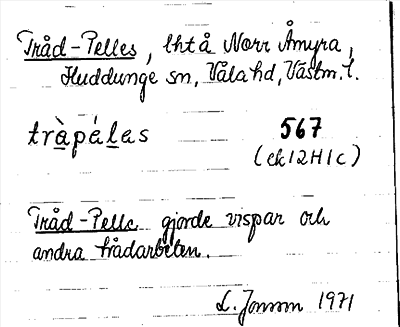 Tråd-Pelles, lht å Norr Åmyra,
Huddunge sn, Våla hd, Västm. l.
tràpélas 567
(ek 12H1c)
Tråd-Pelle gjorde vispar och
andra trådarbeten.
L. Jonson 1971